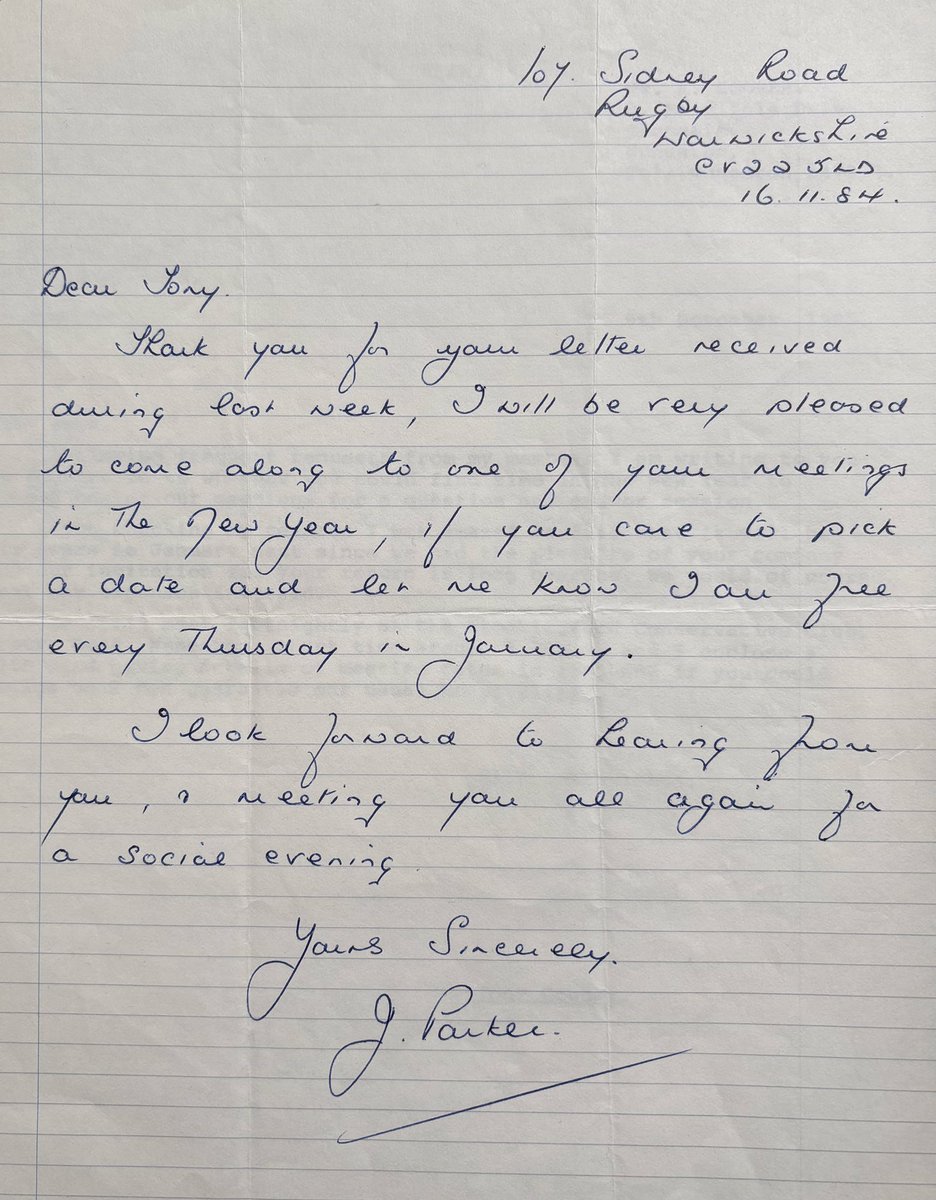 107. Sidney Road
Rugby
Warwickshire
CV22 5LD
16.11.84.
Dear Tony.
Thank you for your letter received
during last week, I will be very pleased
to come along to one of your meetings
in the New Year, if you care to pick
a date and let me know I am free
every Thursday in January.
I look forward to hearing from
you, & meeting you all again for
a social evening
Yours Sincerely.
J. Parker.